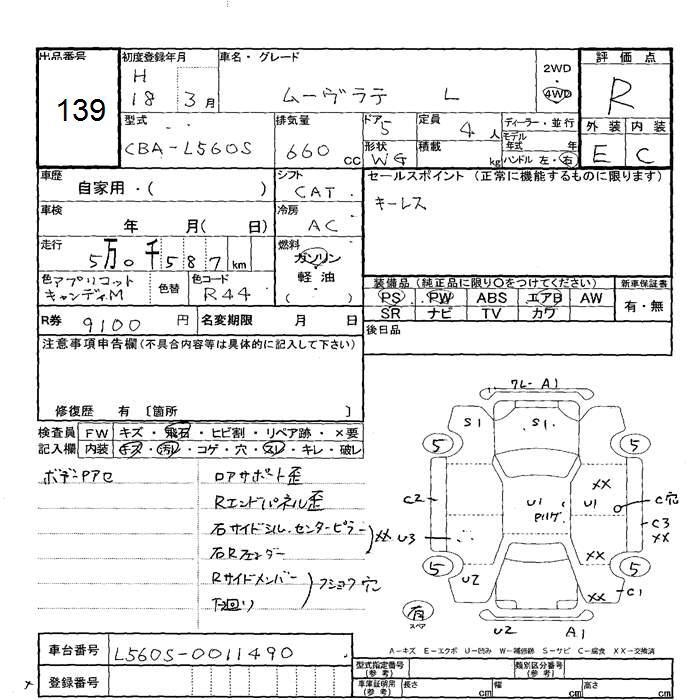 出品番号 139
初度登録年月 H 18 3月
車名・グレード ムーヴラテ L
2WD
4WD
評価点 R
外装 内装
E C
型式 CBA-L560S
排気量 660 cc
ドア 5
形状 WG
定員 4 人
積載 kg
ディーラー・並行
モデル年式 年
ハンドル 左・右
車歴 自家用・( )
シフト CAT
セールスポイント (正常に機能するものに限ります)
キーレス
車検 年 月( 日)
冷房 AC
走行 5万0千587km
燃料 ガソリン
軽油
( )
色 アプリコットキャンディM
色替
色コード R44
装備品 (純正品に限り○をつけてください)
新車保証書
PS PW ABS エアB AW
有・無
SR ナビ TV カワ
R券 9100 円
名変期限 月 日
後日品
注意事項申告欄(不具合内容等は具体的に記入して下さい)
修復歴 有 〔箇所 〕
検査員 FW キズ・飛石・ヒビ割・リペア跡・×要
記入欄 内装 キズ・汚レ・コゲ・穴・スレ・キレ・破レ
ボデーPアセ
ロアサポート歪
Rエンドパネル歪
右サイドシル、センターピラー
右Rフェンダー
XX
Rサイドメンバー
下回り
フショク穴
クレー A1
S1 S1
5 5
XX
C2 U1 U1 C穴
Pハゲ
C3
U3 XX
5 XX 5
U2 XX C1
有
スペア
U2 A1
A-キズ E-エクボ U-凹み W-補修跡 S-サビ C-腐食 XX-交換済
車台番号 L560S-0011490
登録番号
型式指定番号(参考)
類別区分番号(参考)
車庫証明用(参考) 長さ cm 幅 cm 高さ cm